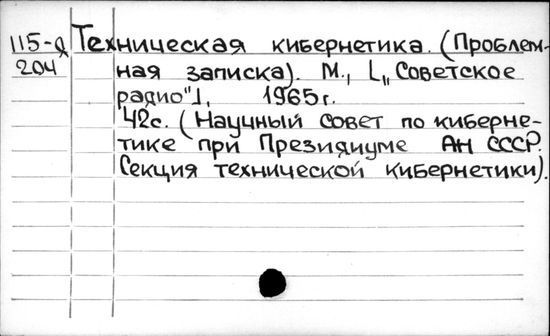 115-д Техническая кибернетика. (Проблем-
204 ная записка). М., [„Советское
радио"], 1965г.
42с. (Научный совет по киберне-
тике при Президиуме АН СССР.
Секция технической кибернетики).